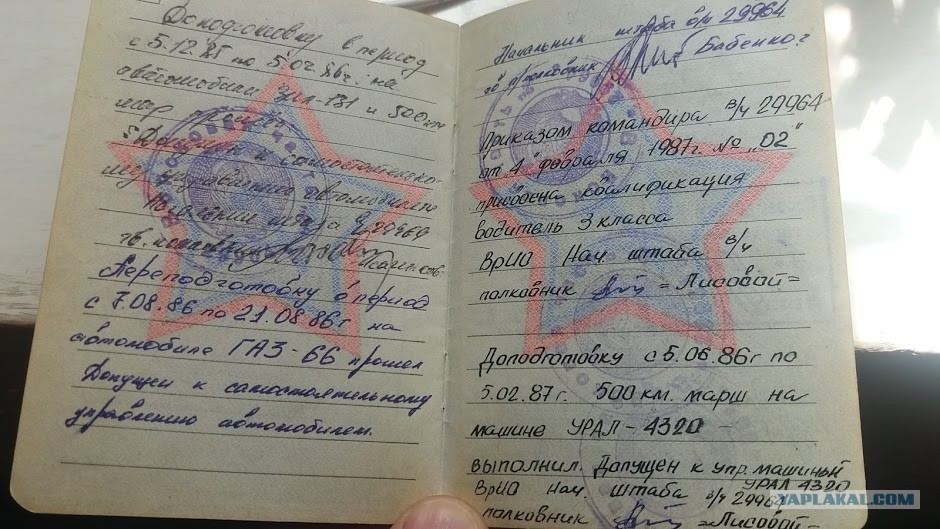 Доподготовку в период
с 5.12.85 по 5.02.86г. на
автомобиле ЗИЛ-131 и 500 км
марш
Допущен к самостоятельно-
му управлению автомобилем
Начальник штаба в/ч 29964
Переподготовку в период
с 7.08.86 по 21.08.86г на
автомобиле ГАЗ-66 прошел
Допущен к самостоятельному
управлению автомобилем.
Начальник штаба в/ч 29964
п/полковник Бабенко
Приказом командира в/ч 29964
от 4 февраля 1987г. № „02"
присвоена квалификация
водитель 3 класса
ВрИО Нач. штаба в/ч
полковник =Лисовой=
Доподготовку с 5.06.86г по
5.02.87г. 500 км. марш на
машине УРАЛ-4320 -
выполнил. Допущен к упр. машиный
УРАЛ 4320
ВрИО Нач. штаба в/ч 29964
полковник =Лисовой=
YAPLAKAL.COM